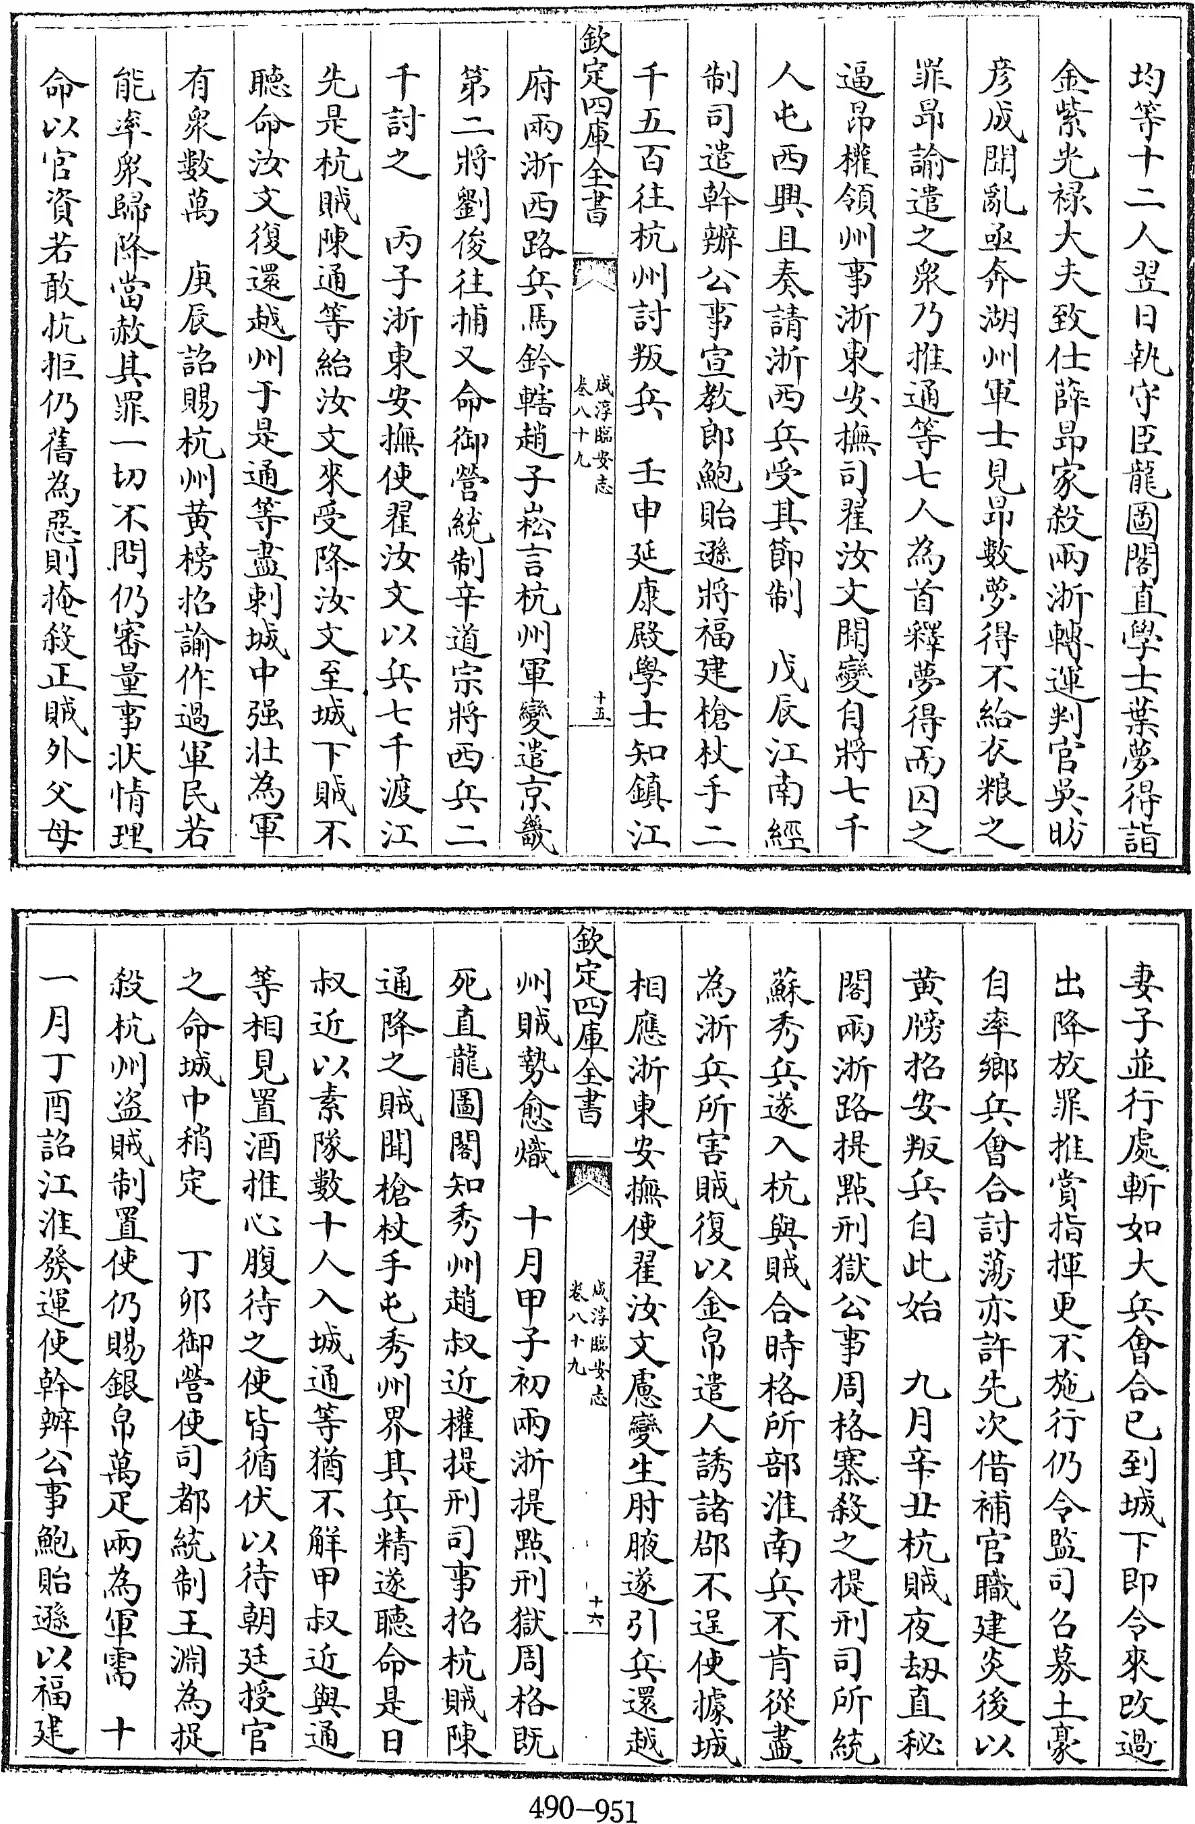 均等十二人翌日執守臣龍圖閣直學士葉夢得詣
金紫光祿大夫致仕薛昂家殺兩浙轉運判官吳昉
彥成聞亂亟奔湖州軍士見昂數夢得不給衣粮之
罪昂諭遣之衆乃推通等七人為首釋夢得而囚之
逼昂權領州事浙東安撫司翟汝文聞變自將七千
人屯西興且奏請浙西兵受其節制　戊辰江南經
制司遣幹辦公事宣教郎鮑貽遜將福建槍杖手二
千五百往杭州討叛兵　壬申延康殿學士知鎮江
欽定四庫全書
咸淳臨安志
卷八十九
十五
府兩浙西路兵馬鈐轄趙子崧言杭州軍變遣京畿
第二將劉俊往捕又命御營統制辛道宗將西兵二
千討之　丙子浙東安撫使翟汝文以兵七千渡江
先是杭賊陳通等紿汝文來受降汝文至城下賊不
聽命汝文復還越州于是通等盡刺城中强壯為軍
有衆數萬　庚辰詔賜杭州黄榜招諭作過軍民若
能率衆歸降當赦其罪一切不問仍審量事状情理
命以官資若敢抗拒仍舊為惡則掩殺正賊外父母
妻子並行處斬如大兵會合已到城下即令來改過
出降放罪推賞指揮更不施行仍令監司召募土豪
自率鄉兵會合討蕩亦許先次借補官職建炎後以
黄牓招安叛兵自此始　九月辛丑杭賊夜刼直秘
閣兩浙路提點刑獄公事周格寨殺之提刑司所統
蘇秀兵遂入杭與賊合時格所部淮南兵不肯從盡
為浙兵所害賊復以金帛遣人誘諸郡不逞使據城
相應浙東安撫使翟汝文慮變生肘腋遂引兵還越
欽定四庫全書
咸淳臨安志
卷八十九
十六
州賊勢愈熾　十月甲子初兩浙提點刑獄周格既
死直龍圖閣知秀州趙叔近權提刑司事招杭賊陳
通降之賊聞槍杖手屯秀州界其兵精遂聽命是日
叔近以素隊數十人入城通等猶不解甲叔近與通
等相見置酒推心腹待之使皆循伏以待朝廷授官
之命城中稍定　丁卯御營使司都統制王淵為捉
殺杭州盗賊制置使仍賜銀帛萬疋兩為軍需　十
一月丁酉詔江淮發運使幹辦公事鮑貽遜以福建
490-951